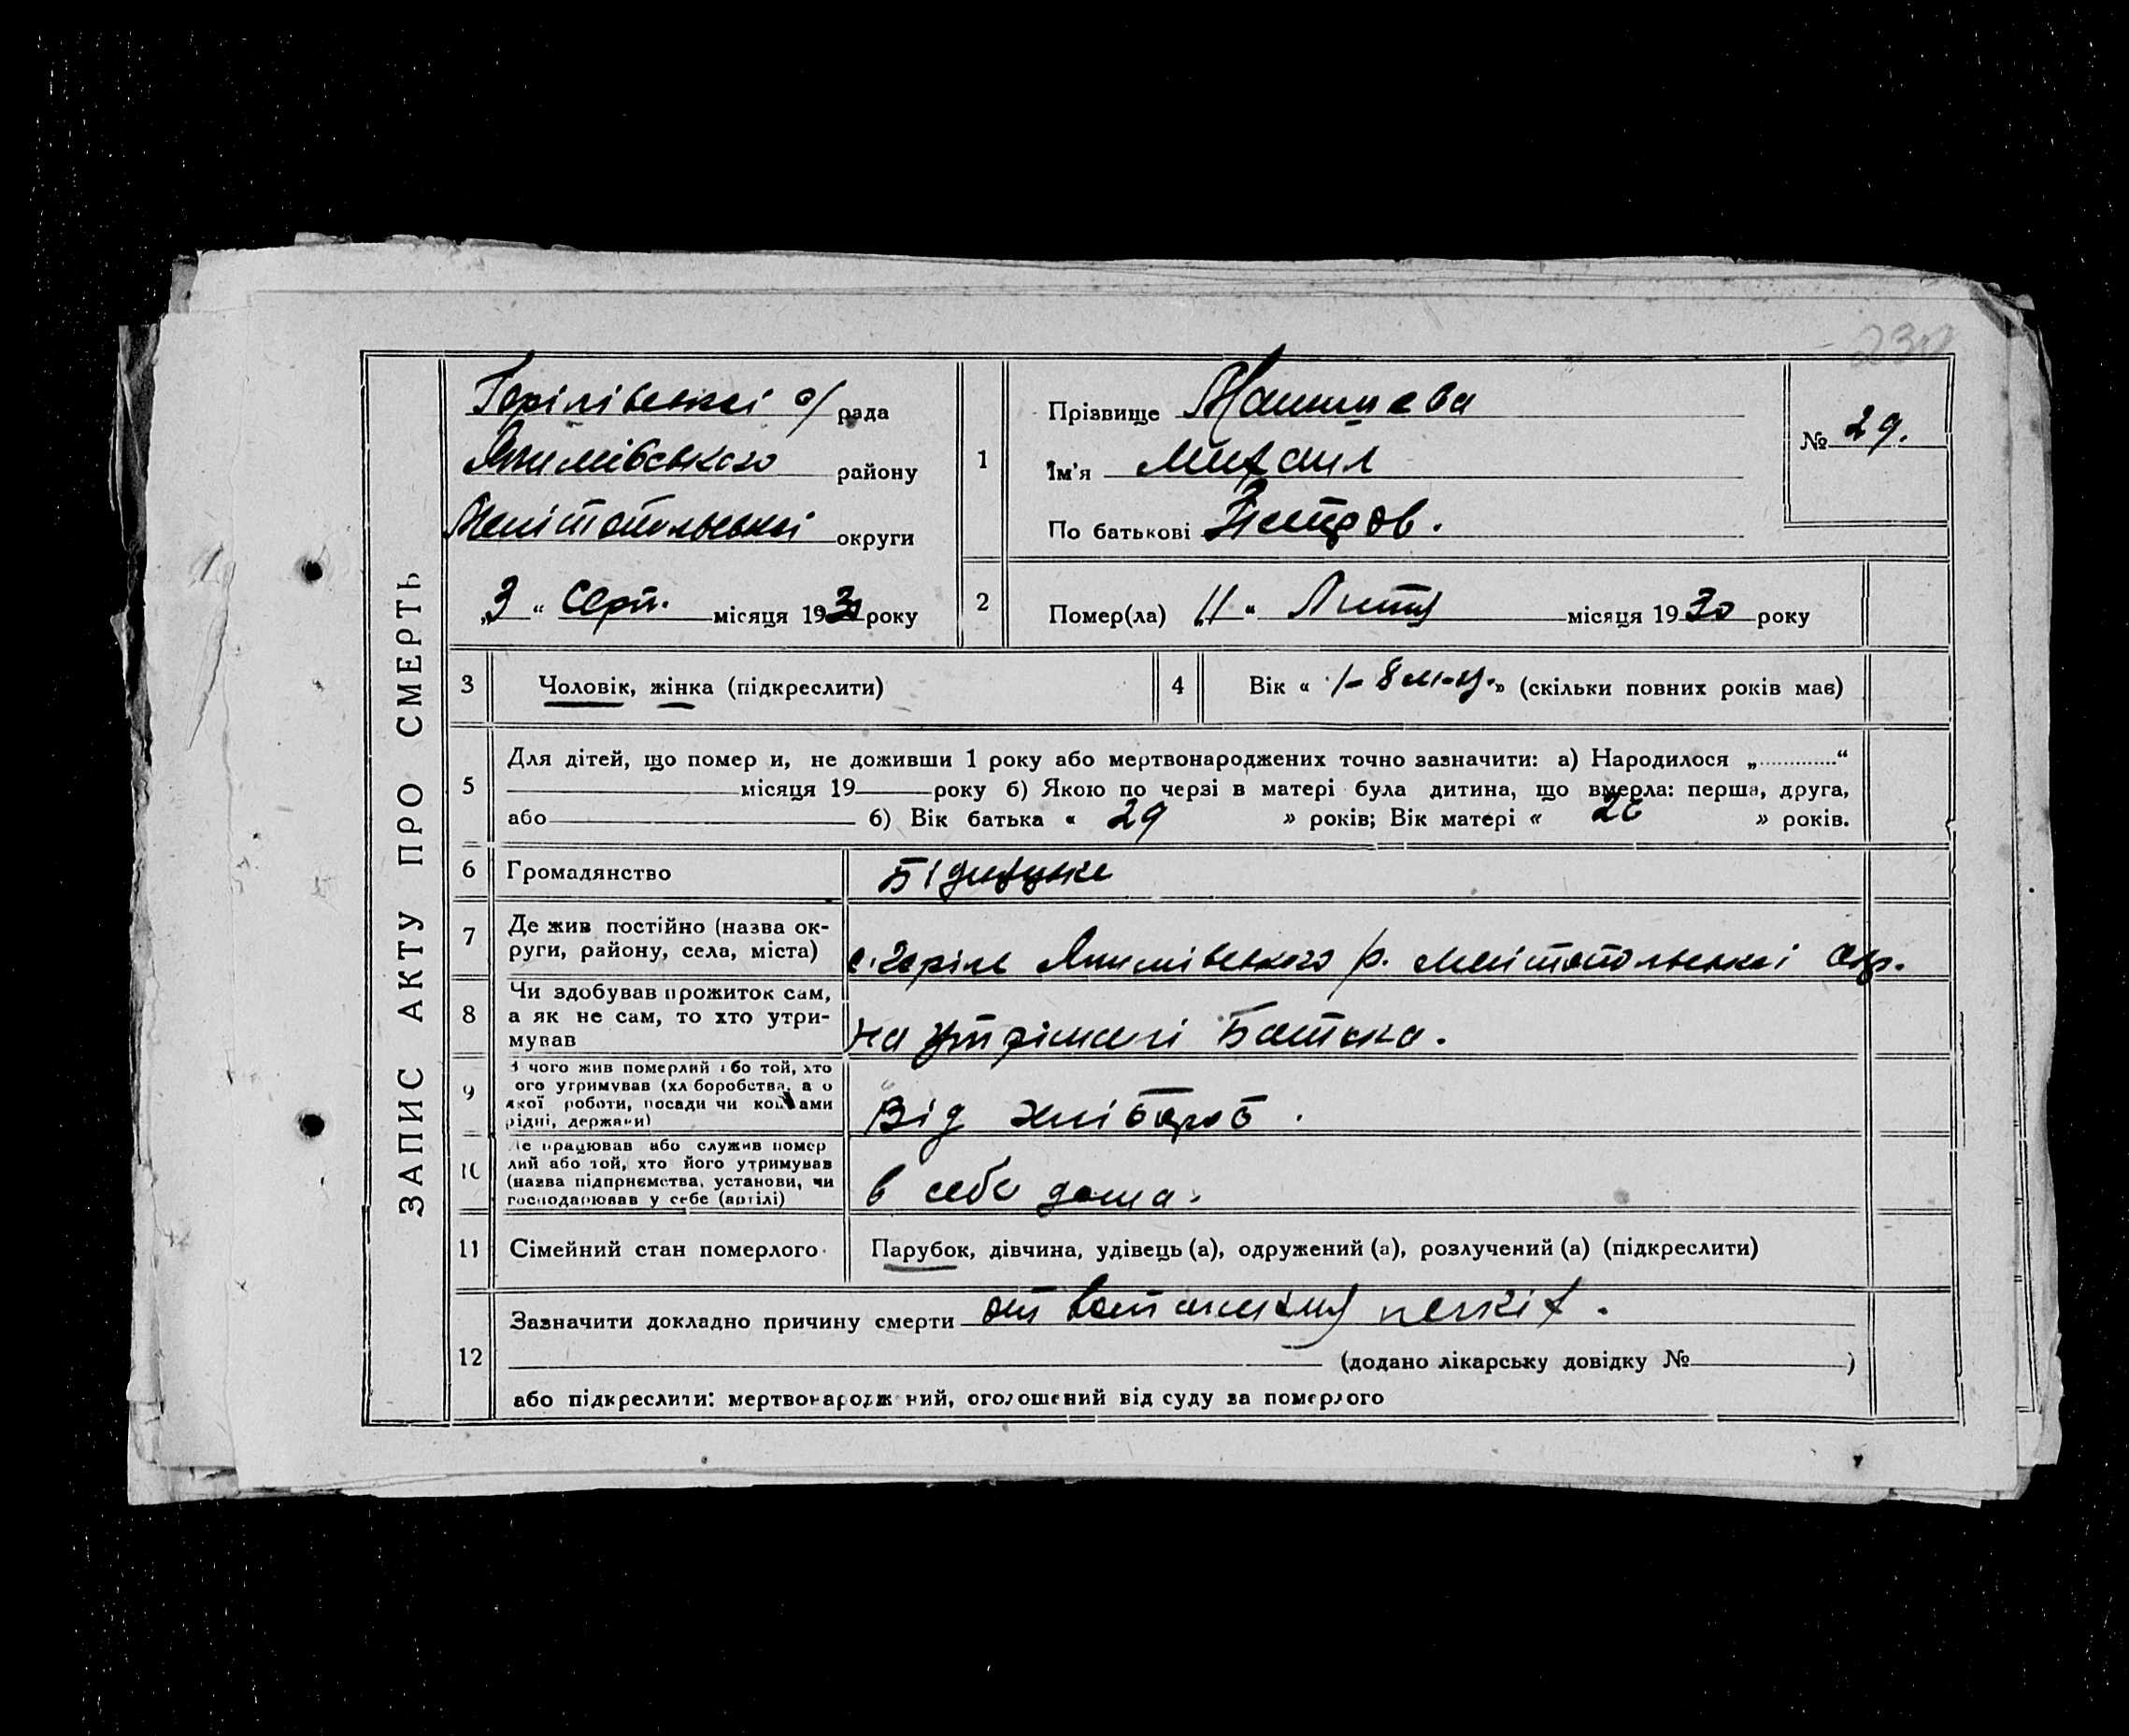 ЗАПИС АКТУ ПРО СМЕРТЬ
230
Герілівської с/ рада
Якимівського району
Мелітопольської округи
„3“ Серп. місяця 1930 року
1
Прізвище
Ім’я Михаил
По батькові Петров.
№ 29.
2
Помер(ла) „11“ місяця 1930 року
3 Чоловік, жінка (підкреслити)
4 Вік « 1-8 м-ц. » (скільки повних років має)
5
Для дітей, що помер и, не доживши 1 року або мертвонароджених точно зазначити: а) Народилося „.............“
місяця 19 року б) Якою по черзі в матері була дитина, що вмерла: перша, друга,
або б) Вік батька « 29 » років; Вік матері « 26 » років.
6 Громадянство
7
Де жив постійно (назва ок-
руги, району, села, міста)
с. Геріль Якимівського р. Мелітопольської Окр.
8
Чи здобував прожиток сам,
а як не сам, то хто утри-
мував
на утрімані Батька.
9
З чого жив померлий або той, хто
його утримував (хл боробства, з о
якої роботи, посади чи коштами
рідні, держави)
Від хлібороб.
10
Де працював або служив помер
лий або той, хто його утримував
(назва підприємства, установи, чи
господарював у себе (артілі)
в себе дома.
11 Сімейний стан померлого Парубок, дівчина, удівець (а), одружений (а), розлучений (а) (підкреслити)
12
Зазначити докладно причину смерти от легкіх.
(додано лікарську довідку № )
або підкреслити: мертвонародж ний, оголошений від суду за померлого